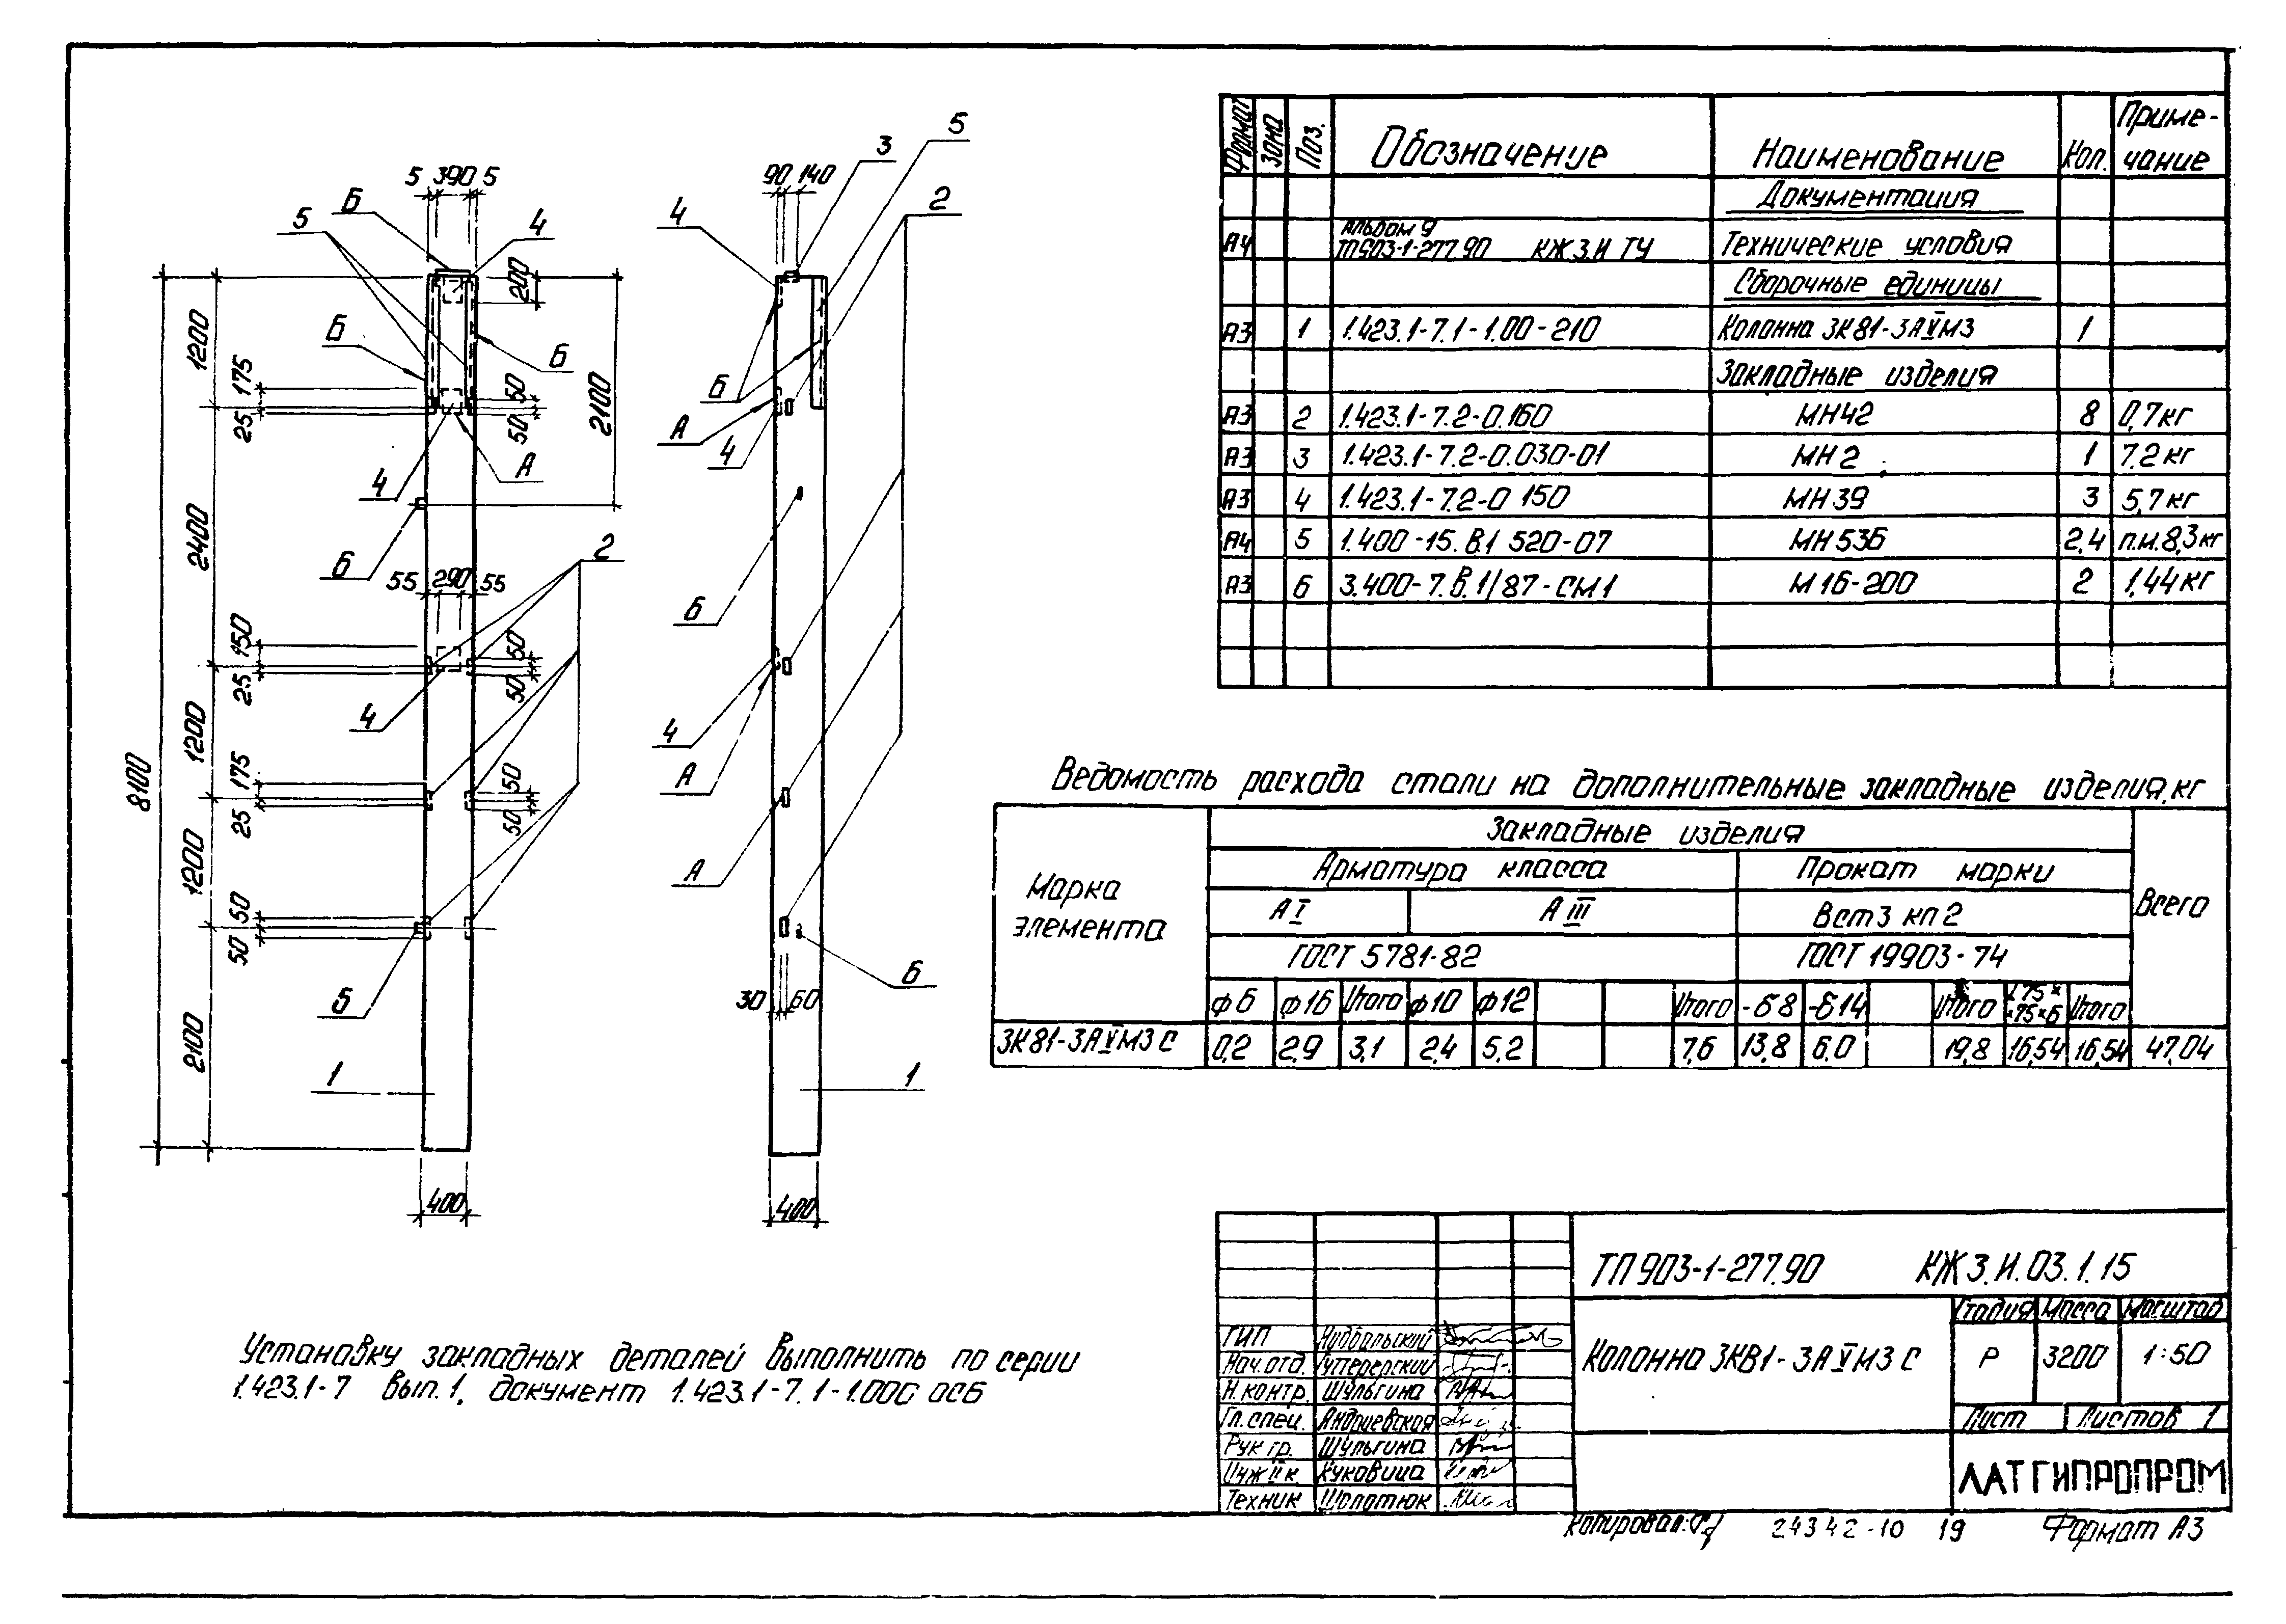 5 390 5
Б
5
4
200
1200
Б
Б
175
25
50
50
2100
А
4
2400
Б
2
55 290 55
150
25
50
50
4
1200
175
25
50
50
8100
1200
50
50
Б
2100
1
400
90 140
5
3
2
4
Б
А
4
Б
4
А
А
Б
30 60
1
400
Формат Зона Поз. Обозначение Наименование Кол. Приме-
чание
Документация
Альбом 9
А4 ТП903-1-277.90 КЖ3.И ТУ Технические условия
Сборочные единицы
А3 1 1.423.1-7.1-1.00-210 Колонна 3К81-3АⅤМ3 1
Закладные изделия
А3 2 1.423.1-7.2-0.160 МН42 8 0,7кг
А3 3 1.423.1-7.2-0.030-01 МН2 1 7.2кг
А3 4 1.423.1-7.2-0 150 МН39 3 5,7кг
А4 5 1.400-15.В.1 520-07 МН536 2,4 п.м.8,3кг
А3 6 3.400-7.В.1/87-СМ1 М16-200 2 1,44кг
Ведомость расхода стали на дополнительные закладные изделия,кг
Марка
элемента
Закладные изделия
Всего
Арматура класса Прокат марки
АⅠ АⅢ Вст3 кп2
ГОСТ 5781-82 ГОСТ 19903-74
ф6 ф16 Итого ф10 ф12 Итого -δ8 -δ14 Итого ∟75×
×75×6 Итого
3К81-3АⅤМ3 С 0,2 2,9 3,1 2,4 5,2 7,6 13,8 6,0 19,8 16,54 16,54 47,04
Установку закладных деталей выполнить по серии
1.423.1-7 вып.1, документ 1.423.1-7.1-1.000 ОСБ
ТП903-1-277.90 КЖ3.И.03.1.15
Колонна 3КВ1-3АⅤМ3 С
Стадия Масса Масштаб
Р 3200 1:50
Лист Листов 1
ЛАТГИПРОПРОМ
ГИП
Нач.отд.
Н.контр. Шульгина
Гл.спец. Андриевская
Рук гр. Шульгина
Инж Ⅱ к. Куковица
Техник Шолотюк
Копировал: 24342-10 19 Формат А3